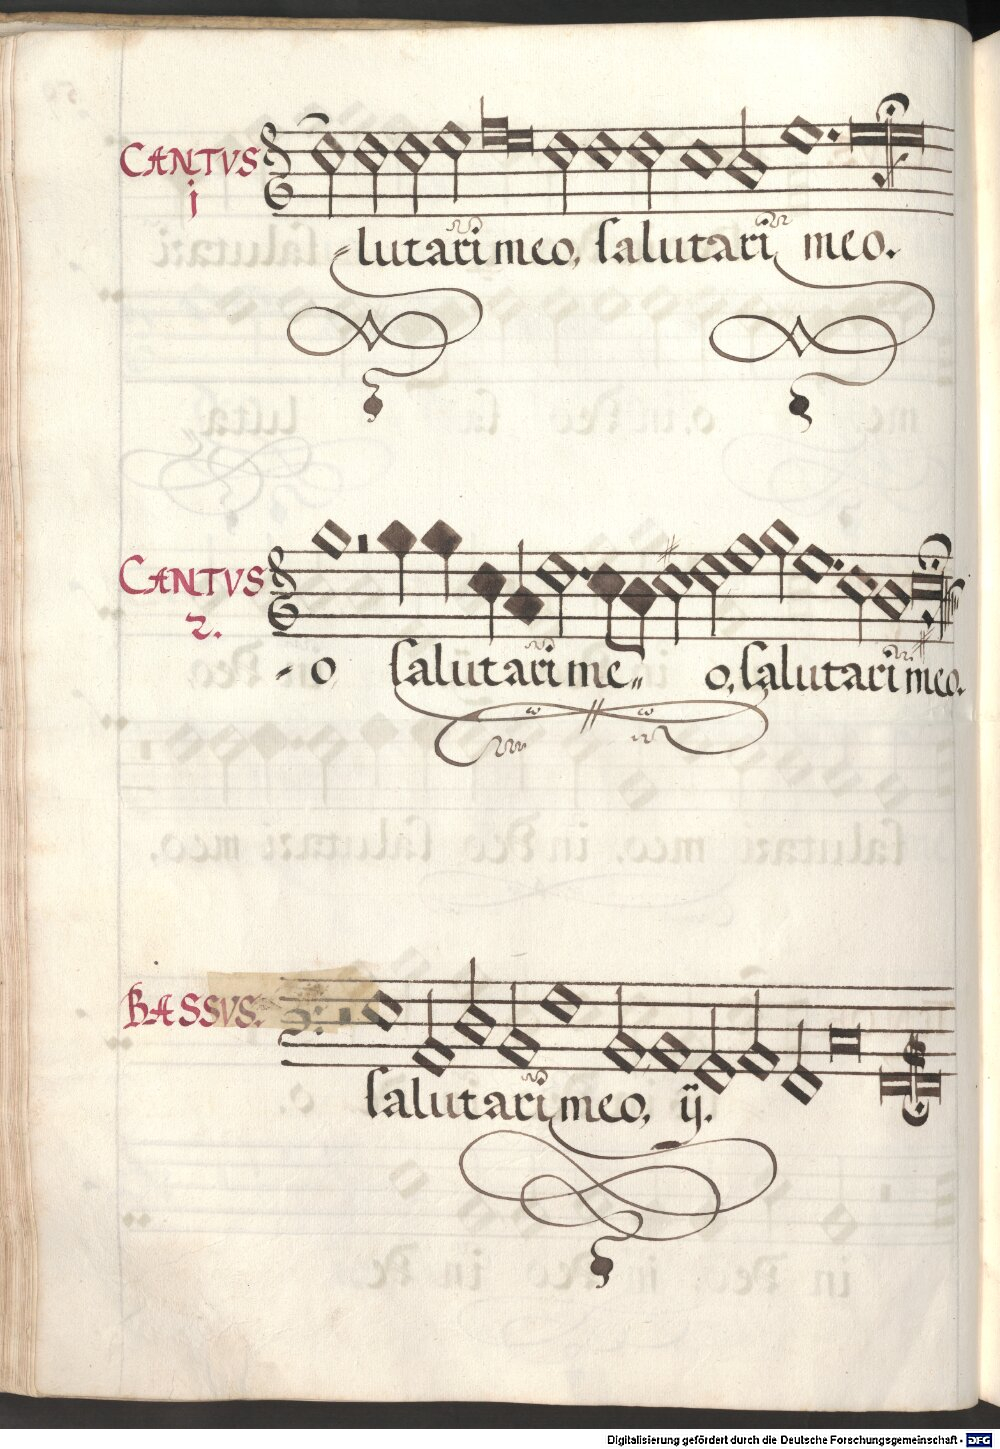 CANTVS
j
-lutari meo, salutari meo.
CANTVS
2.
-o salutari me„ o, salutari meo.
BASSVS.
salutari meo, ij.
Digitalisierung gefördert durch die Deutsche Forschungsgemeinschaft - DFG